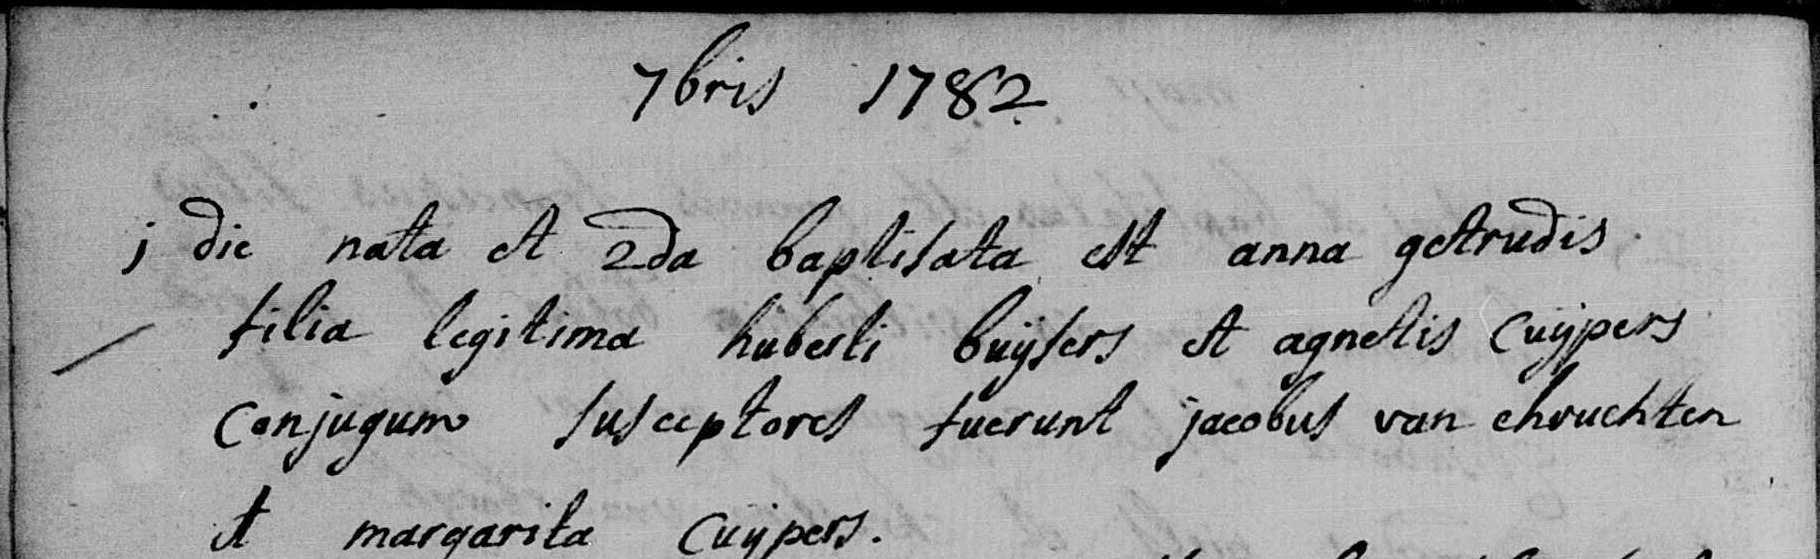 7bris 1782
j die nata et 2da baptisata est anna getrudis
filia legitima huberti buÿsers et agnetis Cuÿpers
Conjugum susceptores fuerunt jacobus van chruchten
et margarita Cuÿpers.